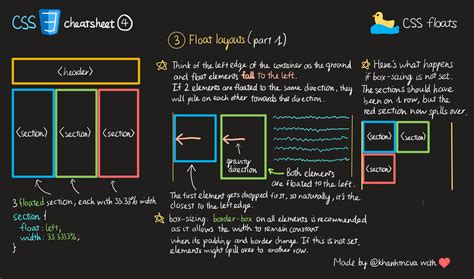 CSS 3 cheatsheet ④
CSS floats
<header>
<section>
<section>
<section>
3 floated section, each with 33.33% width
section {
float: left,
width: 33.3333%,
}
③ Float layouts (part 1)
Think of the left edge of the container as the ground
and float elements fall to the left.
If 2 elements are floated to the same direction, they
will pile on each other towards that direction.
gravity
direction
Both elements
are floated to the left.
The first element gets dropped first, so naturally, it's the
closest to the left edge.
box-sizing: border-box on all elements is recommended
as it allows the width to remain constant
when its padding and border change. If this is not set,
elements might spill over to another row.
Here's what happens
if box-sizing is not set.
The sections should have
been on 1 row, but the
red section now spills over.
<section>
<section>
<section>
Made by @khanhmcva with